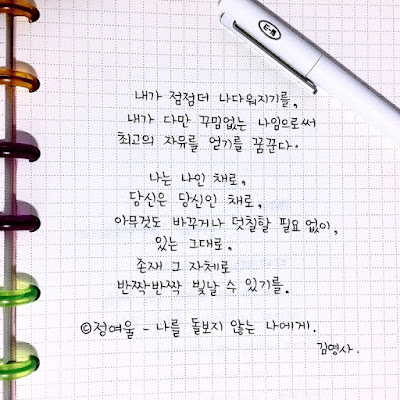 내가 점점더 나다워지기를,
내가 다만 꾸밈없는 나임으로써
최고의 자유를 얻기를 꿈꾼다.
나는 나인 채로,
당신은 당신인 채로,
아무것도 바꾸거나 덧칠할 필요 없이,
있는 그대로,
존재 그 자체로
반짝반짝 빛날 수 있기를.
©정여울 - 나를 돌보지 않는 나에게.
김영사.